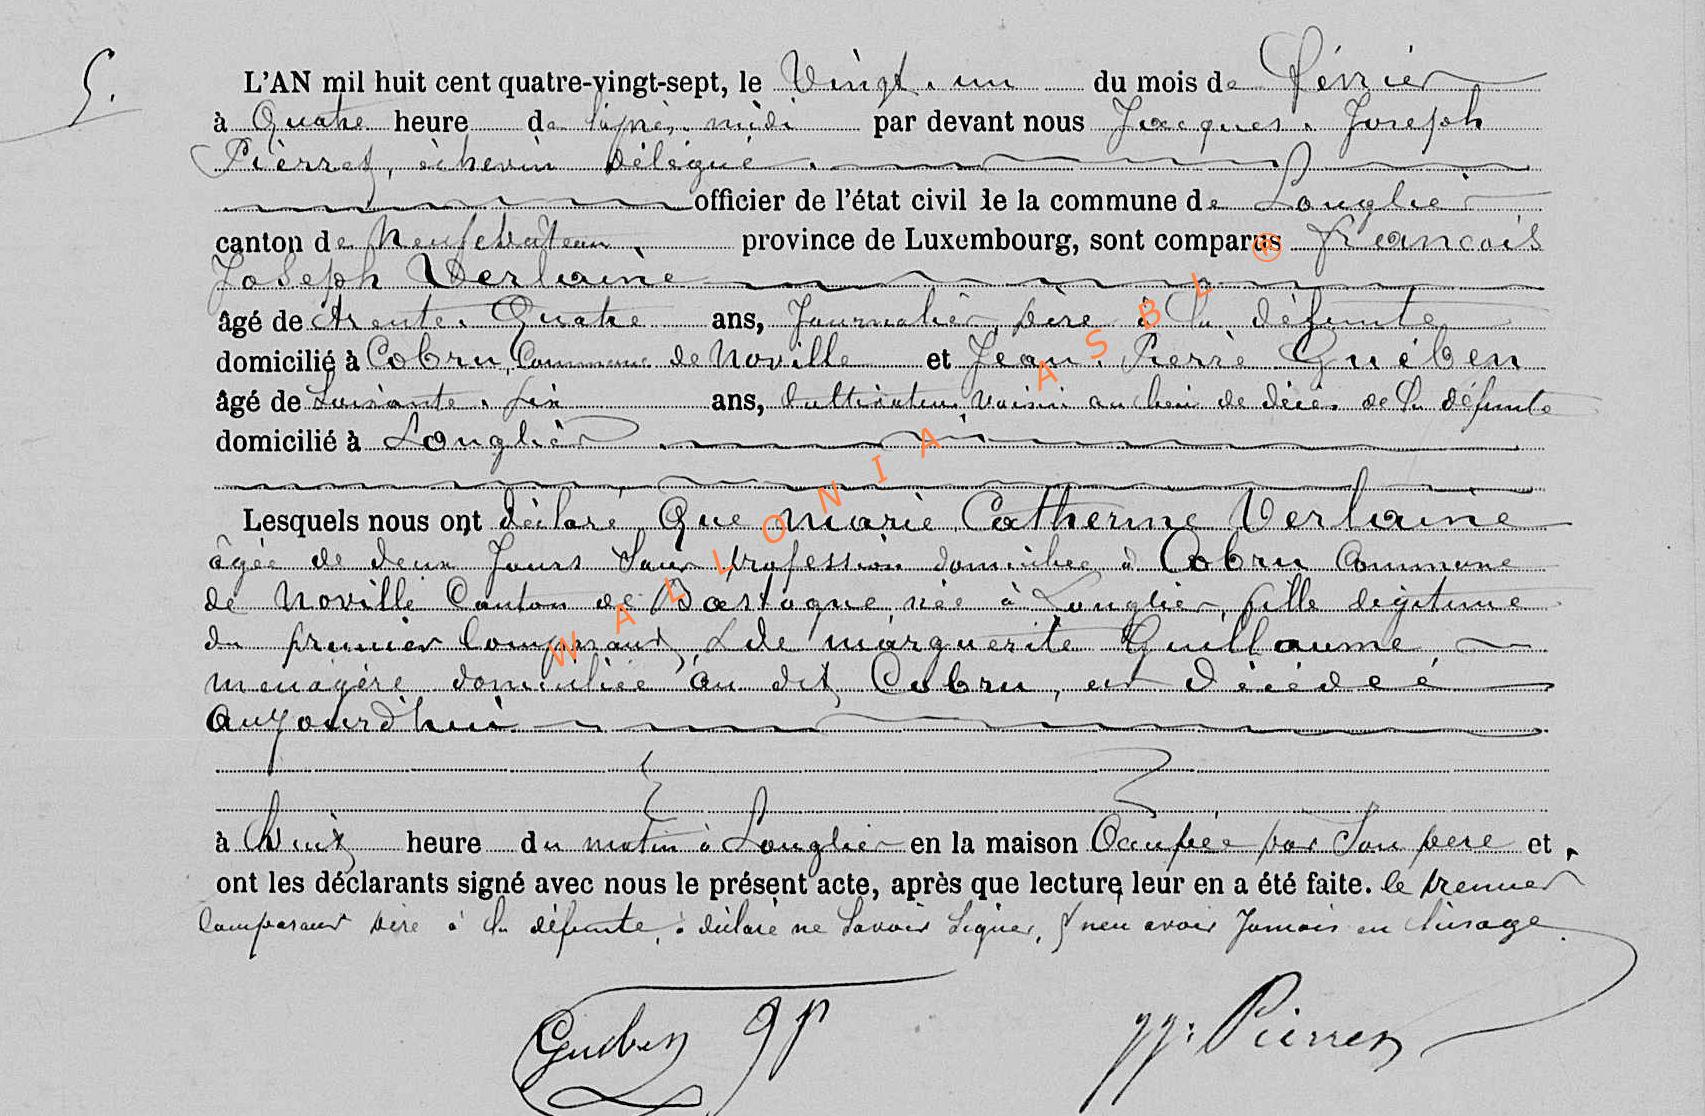 5.
L'AN mil huit cent quatre-vingt-sept, le Vingt-un du mois de Février
à Quatre heure de l'après-midi par devant nous Jacques-Joseph
Pierret, échevin délégué
officier de l'état civil de la commune de Longlier
canton de Neufchâteau, province de Luxembourg, sont comparus François
Joseph Verlaine
âgé de trente-Quatre ans, Journalier, père à la défunte
domicilié à Cobru, Commune de Noville et Jean-Pierre Guében
âgé de Soixante-six ans, Cultivateur, voisin au lieu de décès de la défunte
domicilié à Longlier
Lesquels nous ont déclaré Que Marie Catherine Verlaine
âgée de deux Jours Sans profession domiciliée à Cobru Commune
de Noville Canton de Bastogne, née à Longlier, fille légitime
du premier Comparant, & de Marguerite Guillaume
ménagère, domiciliée au dit Cobru, est décédée
aujourd'hui
à huit heure du matin à Longlier en la maison Occupée par Son père et
ont les déclarants signé avec nous le présent acte, après que lecture leur en a été faite. le premier
Comparant père à la défunte, a déclaré ne Savoir Signer, & n'en avoir Jamais eu l'usage.
Gueben J P
JJ: Pierret
WALLONIA ASBL ®